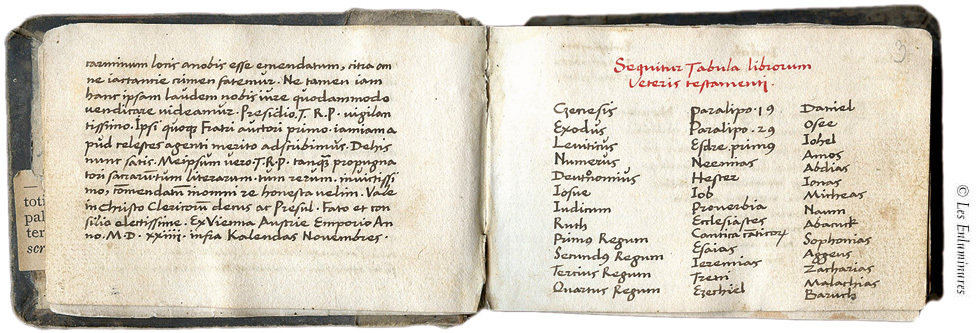 carminum locis anobis esse emendatum, citra om
ne iactantie crimen fatemur. Ne tamen iam
hanc ipsam laudem nobis iure quodammodo
vendicare videamur. Presidio .T. R.P. vigilan
tissimo. Ipsi quoqꝫ Fratri auctori primo. iamiam a
pud celestes agenti merito adscribimus. De his
nunc satis. Meipsum vero .T.R.P. tanqꝫ propugna
tori sacrarum literarum. tum rerum. invictissi
mo, comendatū in omni re honesta velim. Vale
in Christo Clericorū decus ac Presul. Fato et con
silio electissime. Ex Vienna Austrie Emporio An
no. M.D. xxiiii. infra Kalendas Novembres.
toti
pal
ter
scr
3
Sequitur Tabula librorum
Veteris testamenti.
Genesis
Exodus
Leviticus
Numerus
Iosue
Iudicum
Ruth
Primus Regum
Secundus Regum
Tercius Regum
Quartus Regum
Paralipo. 19
Paralipo. 29
Esdre. primus
Neemias
Hester
Iob
Proverbia
Ecclesiastes
Cantica cāticorꝫ
Esaias
Ieremias
Treni
Ezechiel
Daniel
Osee
Iohel
Amos
Abdias
Ionas
Micheas
Naum
Abacuk
Sophonias
Aggeus
Zacharias
Malachias
Baruch
© Les Enluminures